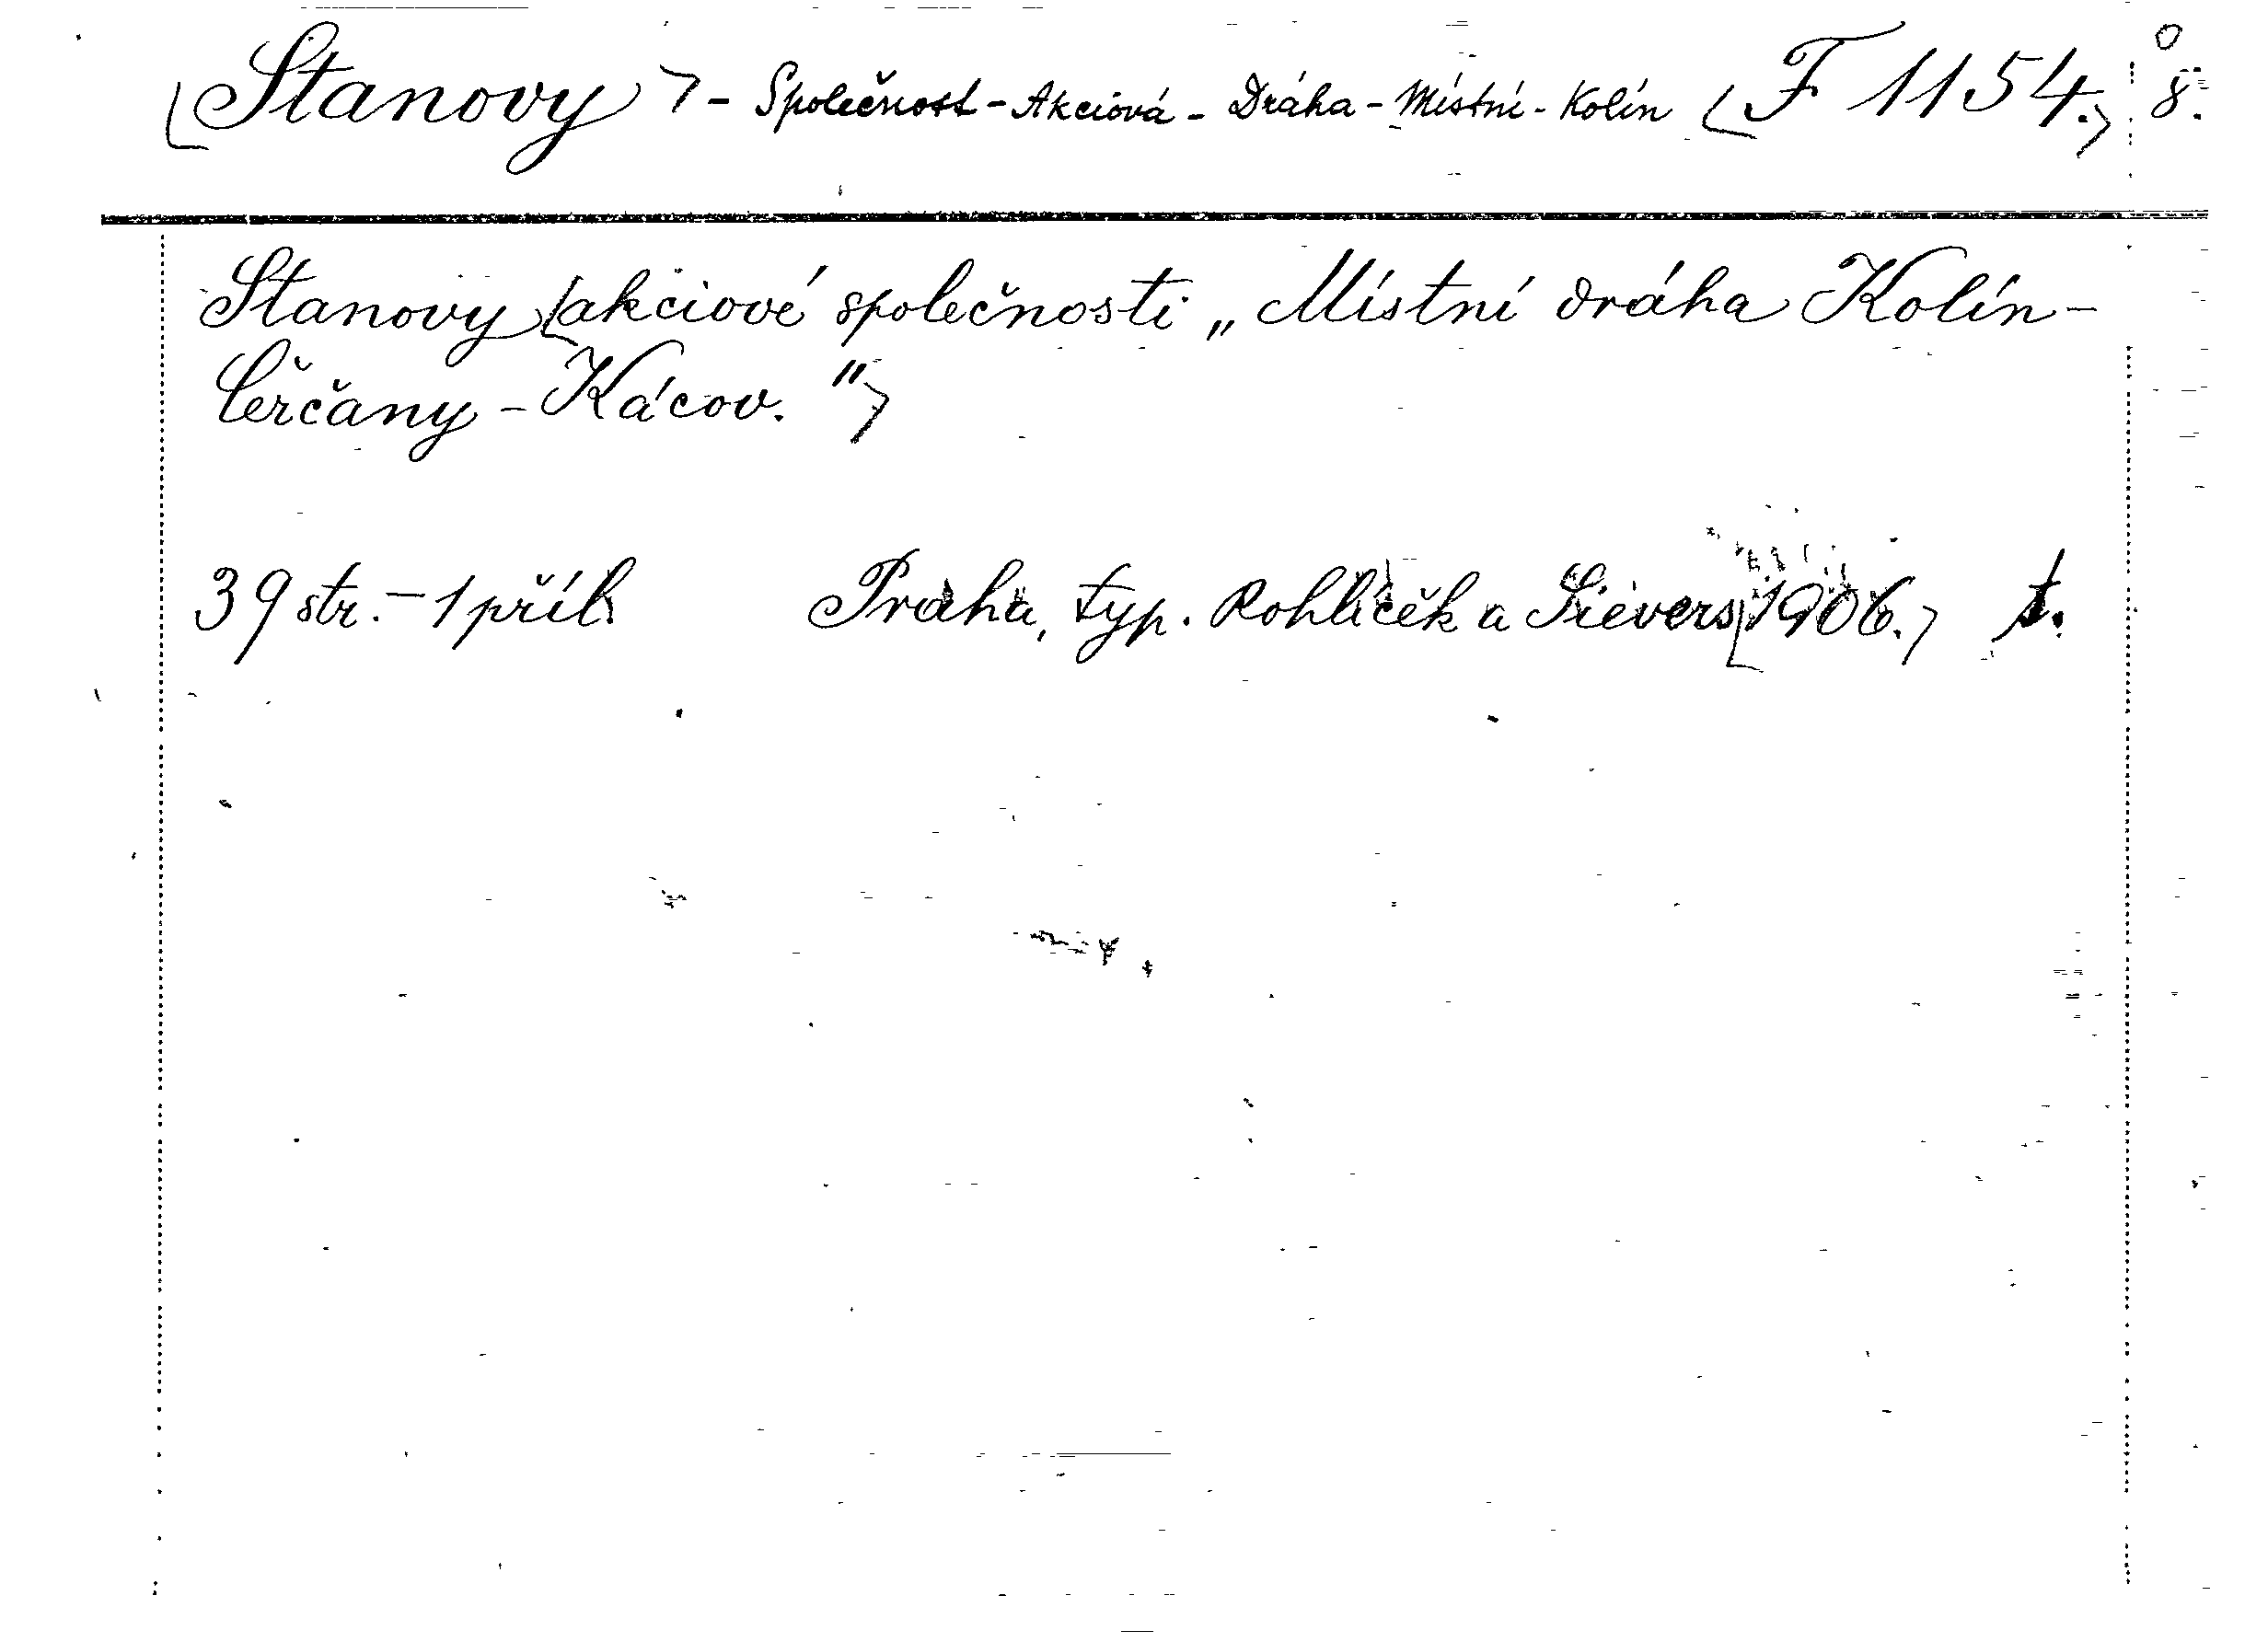 [Stanovy] - Společnost - Akciová - Dráha - Místní - Kolín [F 1154.] 8°.
Stanovy [akciové společnosti „Místní dráha Kolín-
Čerčany - Kácov."]
39 str. - 1 příl. Praha, typ. Rohlíček a Sievers [1906.] t.